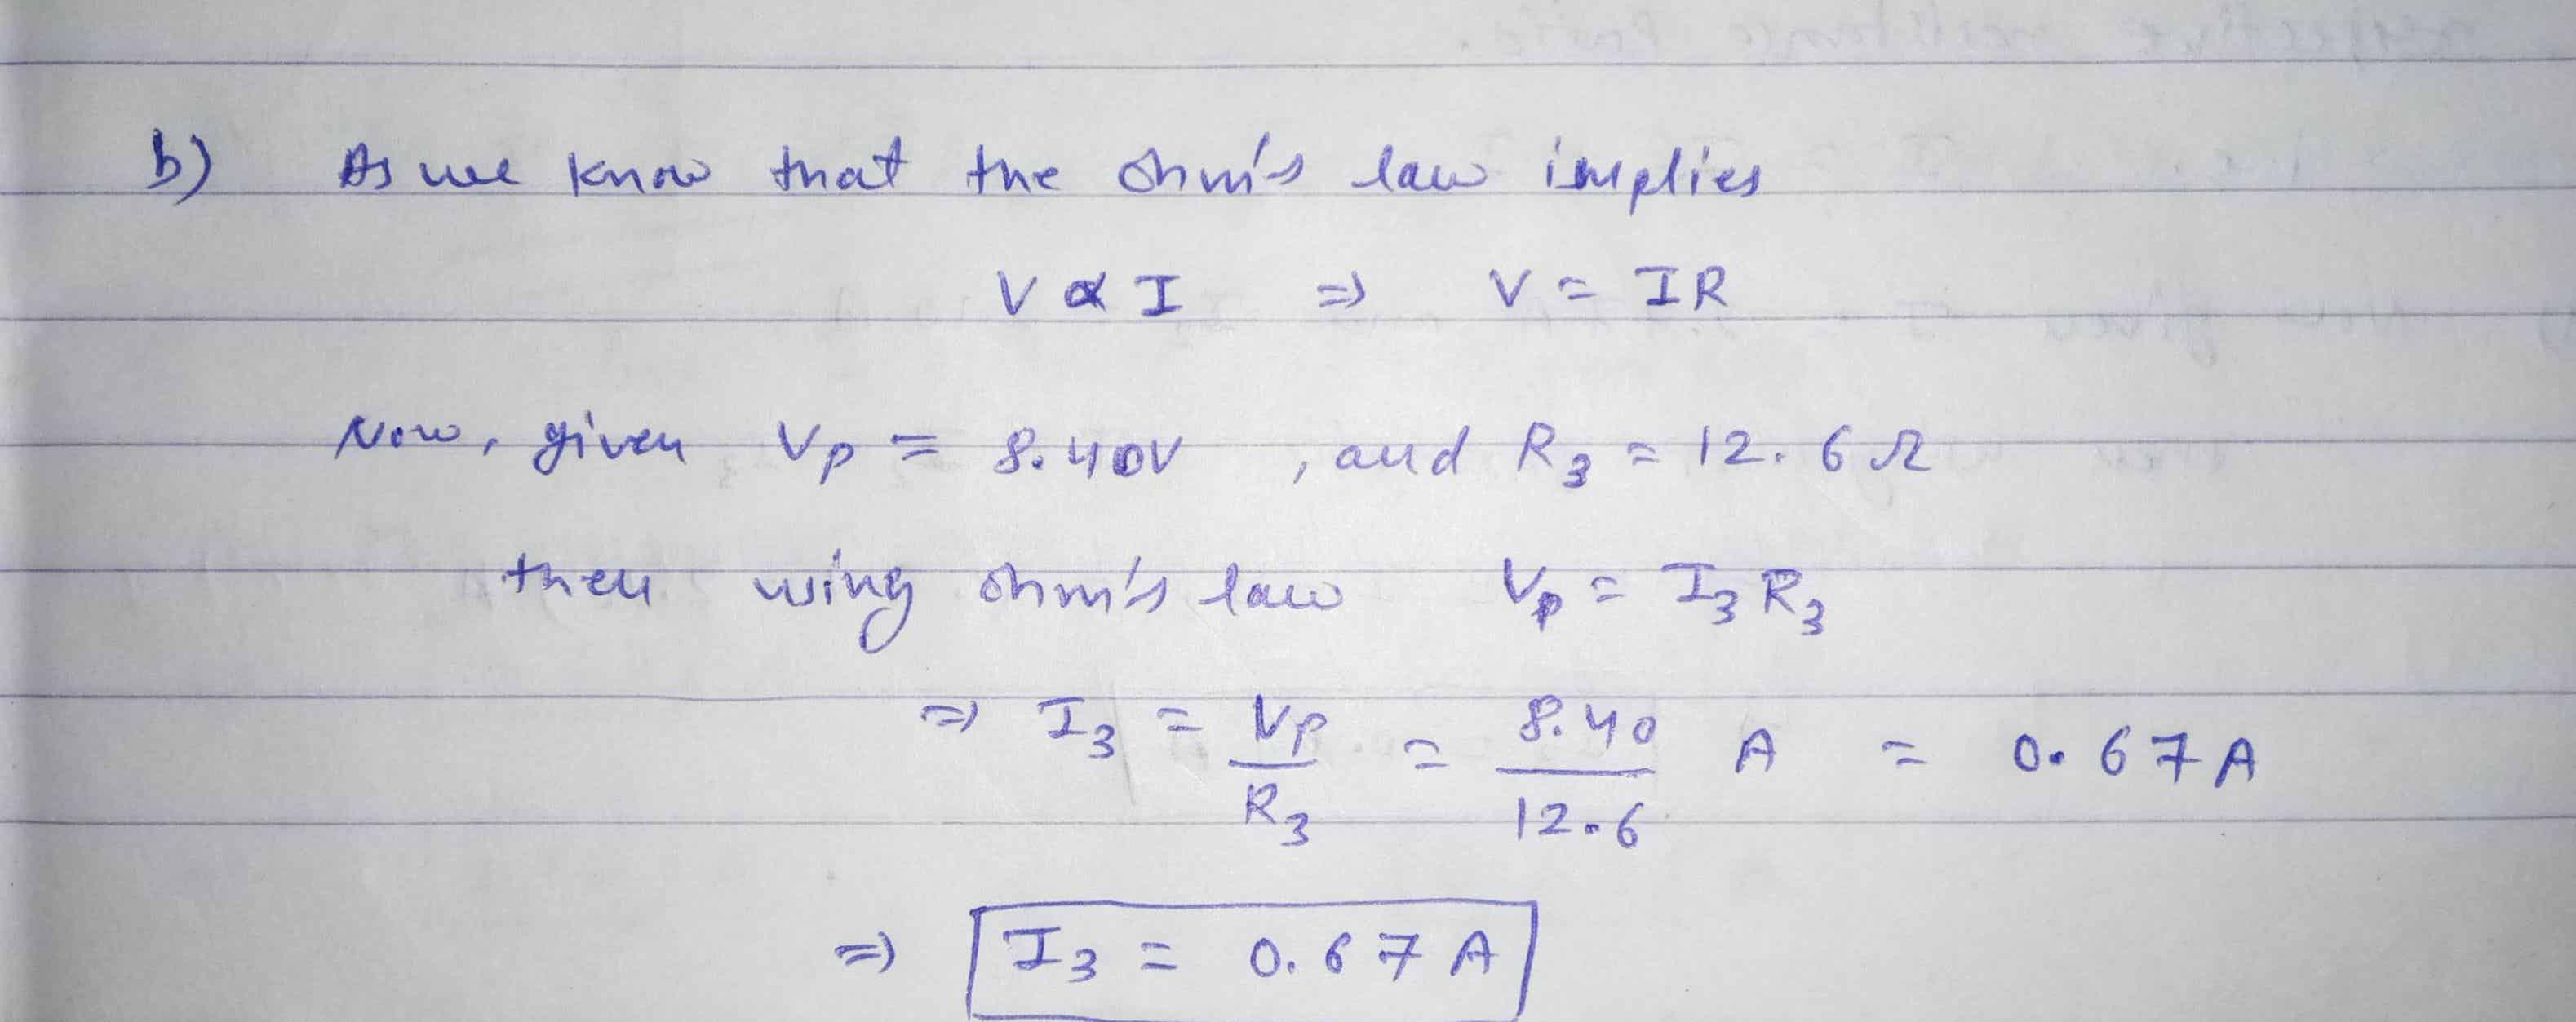 b) As we know that the ohm's law implies
V α I ⇒ V = IR
Now, given Vp = 8.40V , and R3 = 12.6 Ω
then using ohm's law Vp = I3 R3
⇒ I3 = Vp/R3 = 8.40/12.6 A = 0.67A
⇒ I3 = 0.67 A